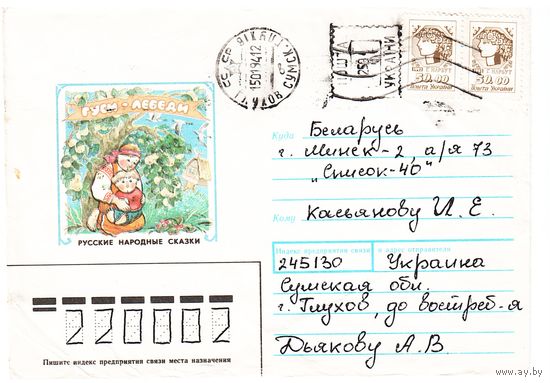 ГУСИ - ЛЕБЕДИ
РУССКИЕ НАРОДНЫЕ СКАЗКИ
150194 12
ПОШТА
УКРАЇНИ
50.00
50.00
Пошта України
Пошта України
Куда Беларусь
г. Минск-2, а/я 73
"Список-40"
Кому Касьянову И. Е.
Индекс предприятия связи и адрес отправителя
245130 Украина
Сумская обл.
г. Глухов, до востреб-я
Дьякову А. В.
220002
Пишите индекс предприятия связи места назначения
www.ay.by